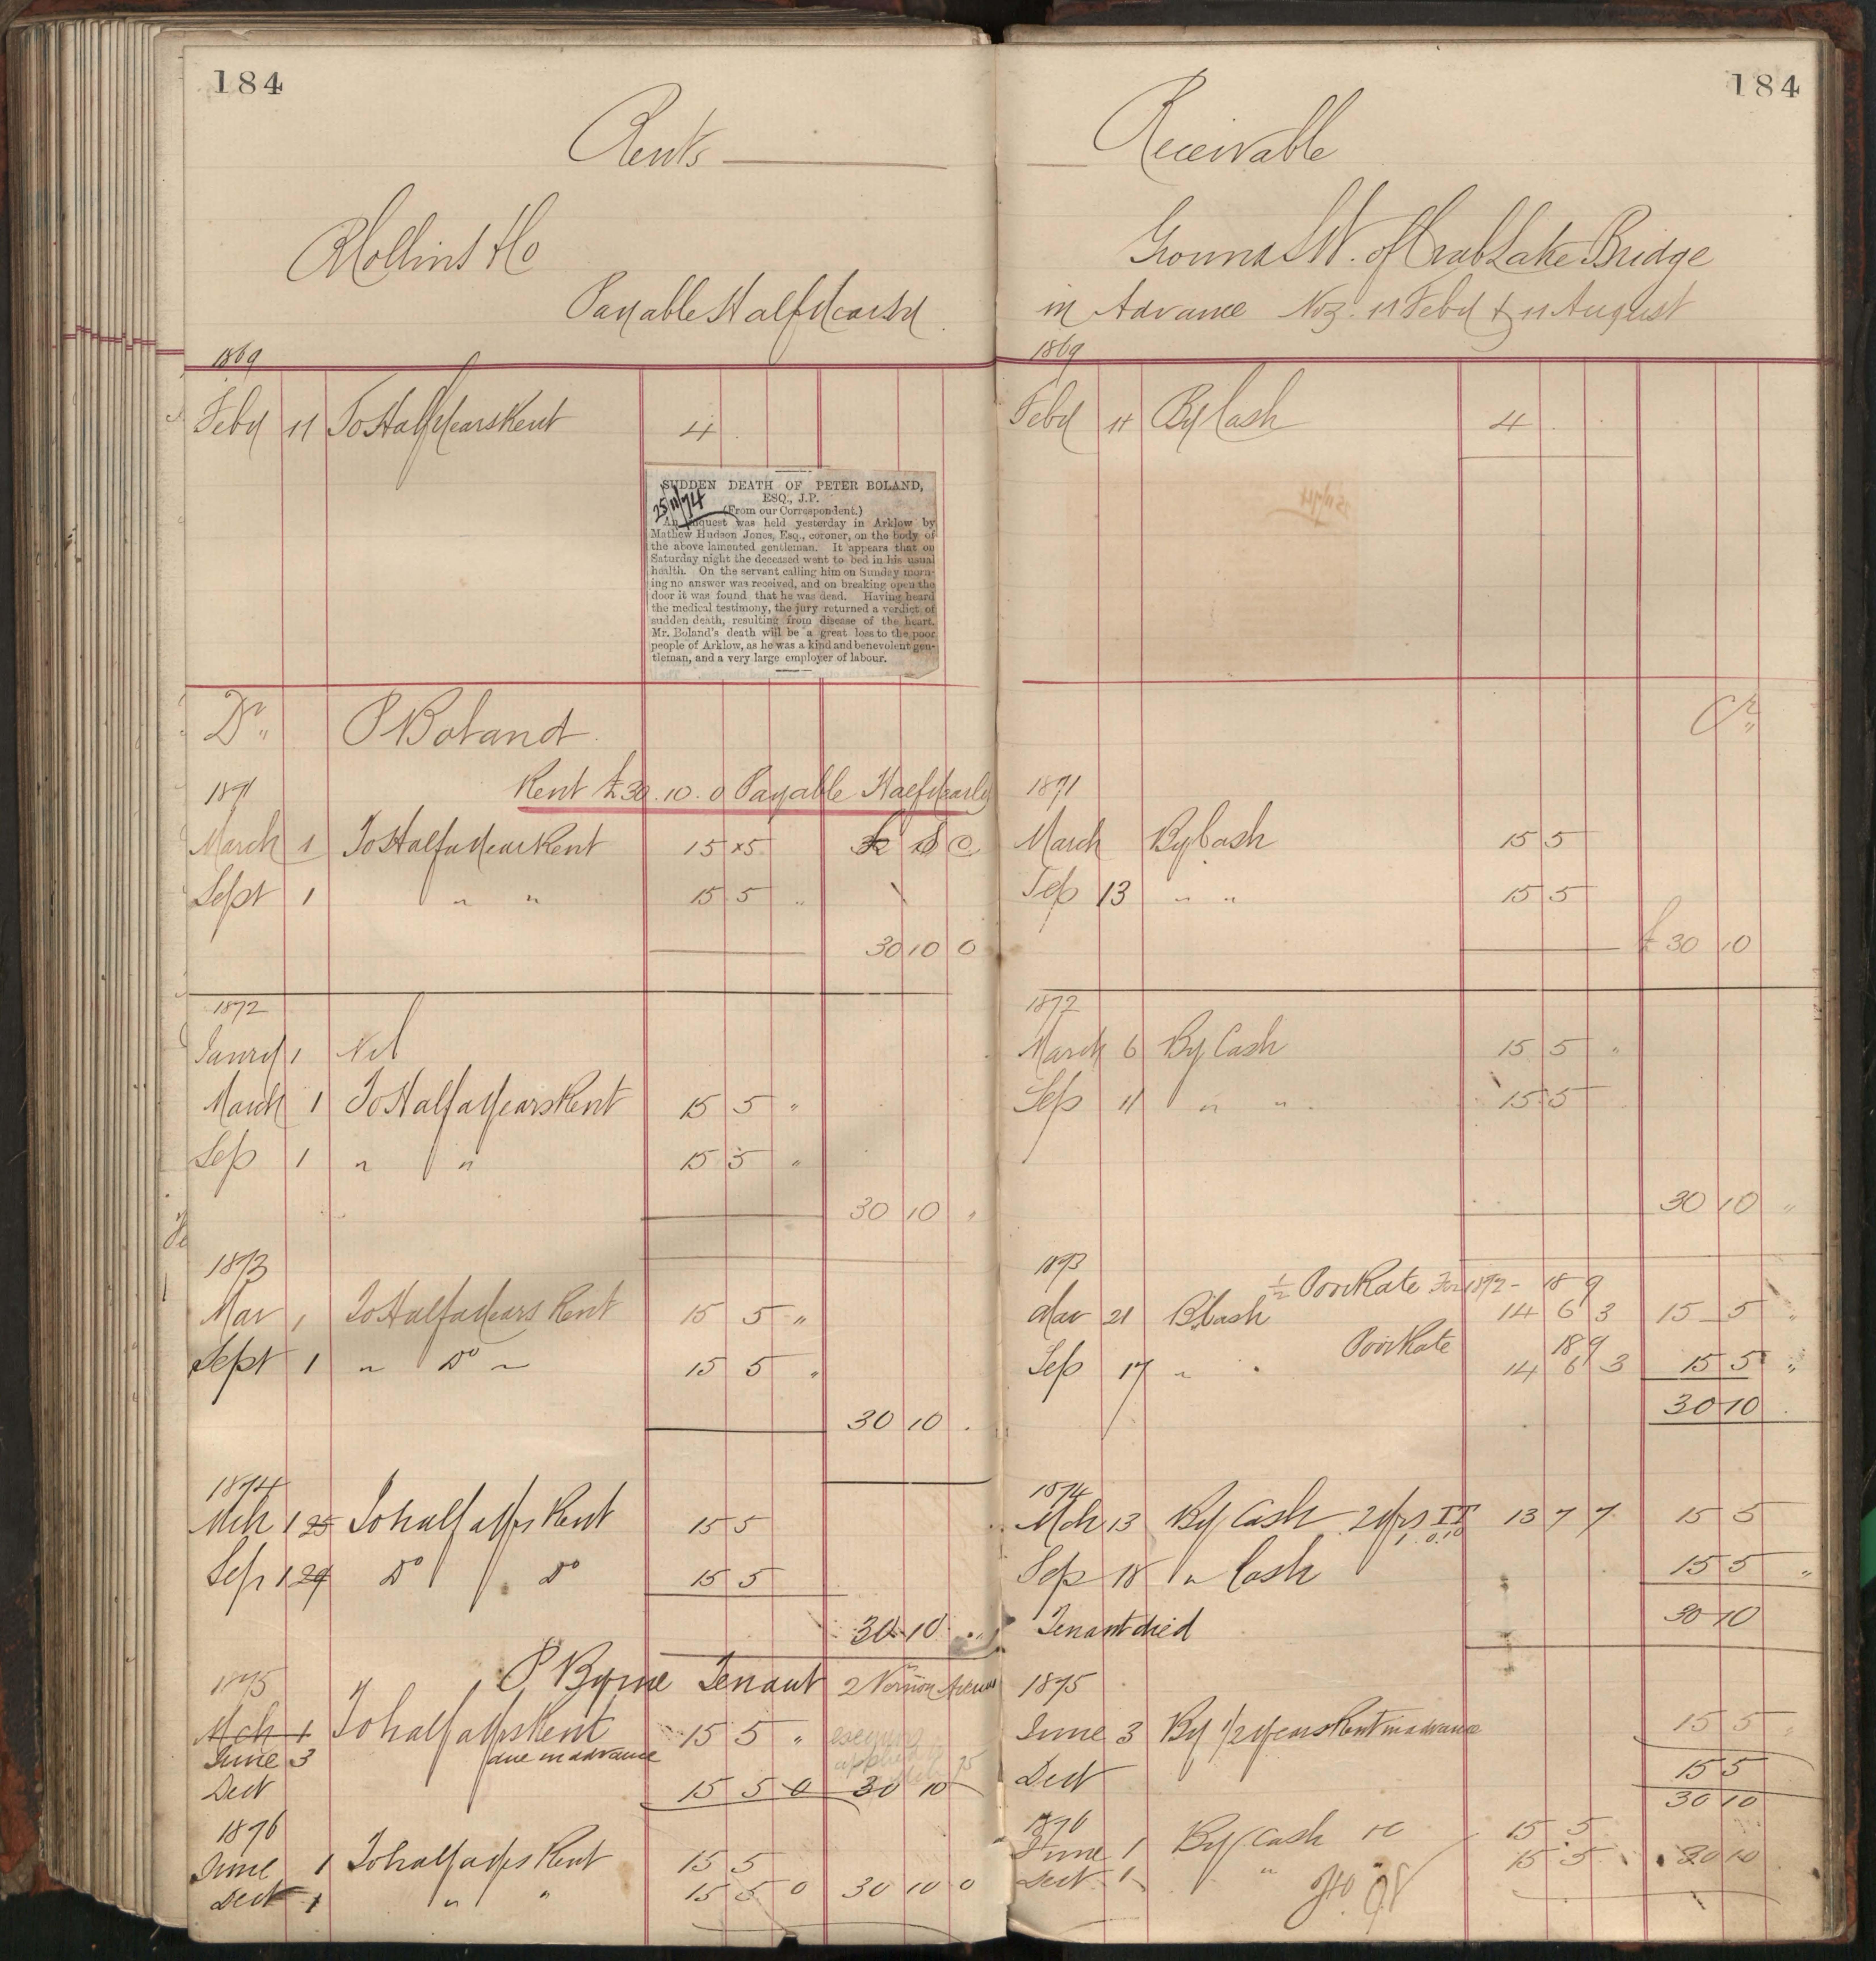 184
Rents
Collins & Co
Payable Half Yearly
1869
Feby 11 To Half Years Rent 4
SUDDEN DEATH OF PETER BOLAND,
ESQ., J.P.
25/11/74
(From our Correspondent.)
An inquest was held yesterday in Arklow by
Mathew Hudson Jones, Esq., coroner, on the body of
the above lamented gentleman. It appears that on
Saturday night the deceased went to bed in his usual
health. On the servant calling him on Sunday morn-
ing no answer was received, and on breaking open the
door it was found that he was dead. Having heard
the medical testimony, the jury returned a verdict of
sudden death, resulting from disease of the heart.
Mr. Boland's death will be a great loss to the poor
people of Arklow, as he was a kind and benevolent gen-
tleman, and a very large employer of labour.
Dr " P Boland
1871 Rent £30.10.0 Payable Half Yearly
March 1 To Half a Year Rent 15 5
Sept 1 " " 15 5 "
30 10 0
1872
Janry 1 Nil
March 1 To Half a Years Rent 15 5 "
Sep 1 " " 15 5 "
30 10 "
1873
Mar 1 To Half a Years Rent 15 5 "
Sept 1 " Do " 15 5 "
30 10 .
1874
Mch 1 25 To half a Yrs Rent 15 5
Sep 1 29 Do Do 15 5
30 10 "
1875 P Byrne Tenant 2 Vernon Avenue
Mch 1 To half a Yrs Rent 15 5 "
June 3 due in advance
Dect 15 5 0 30 10
1876
June 1 To half a Yrs Rent 15 5
Dect 1 " " 15 5 0 30 10 0
184
Receivable
Ground S W. of Crab Lake Bridge
in Advance Viz. 11 Feby & 11 August
1869
Feby 11 By Cash 4
Cr "
1871
March By Cash 15 5
Sep 13 " " 15 5
£ 30 10
1872
March 6 By Cash 15 5 "
Sep 11 " " 15 5
30 10 "
1873
1/2 Poor Rate For 1872 - 18 9
Mar 21 By Cash 14 6 3 15 5 "
Poor Rate 18 9
Sep 17 " 14 6 3 15 5 "
30 10
1874
Mch 13 By Cash 2 Yrs IT 13 7 7 15 5
1.0.10
Sep 18 " Cash 15 5 "
Tenant died 30 10
1875
June 3 By 1/2 Years Rent in advance 15 5 "
Dect 15 5
30 10
1876
June 1 By Cash 15 5
Dect 1 " 15 5 30 10